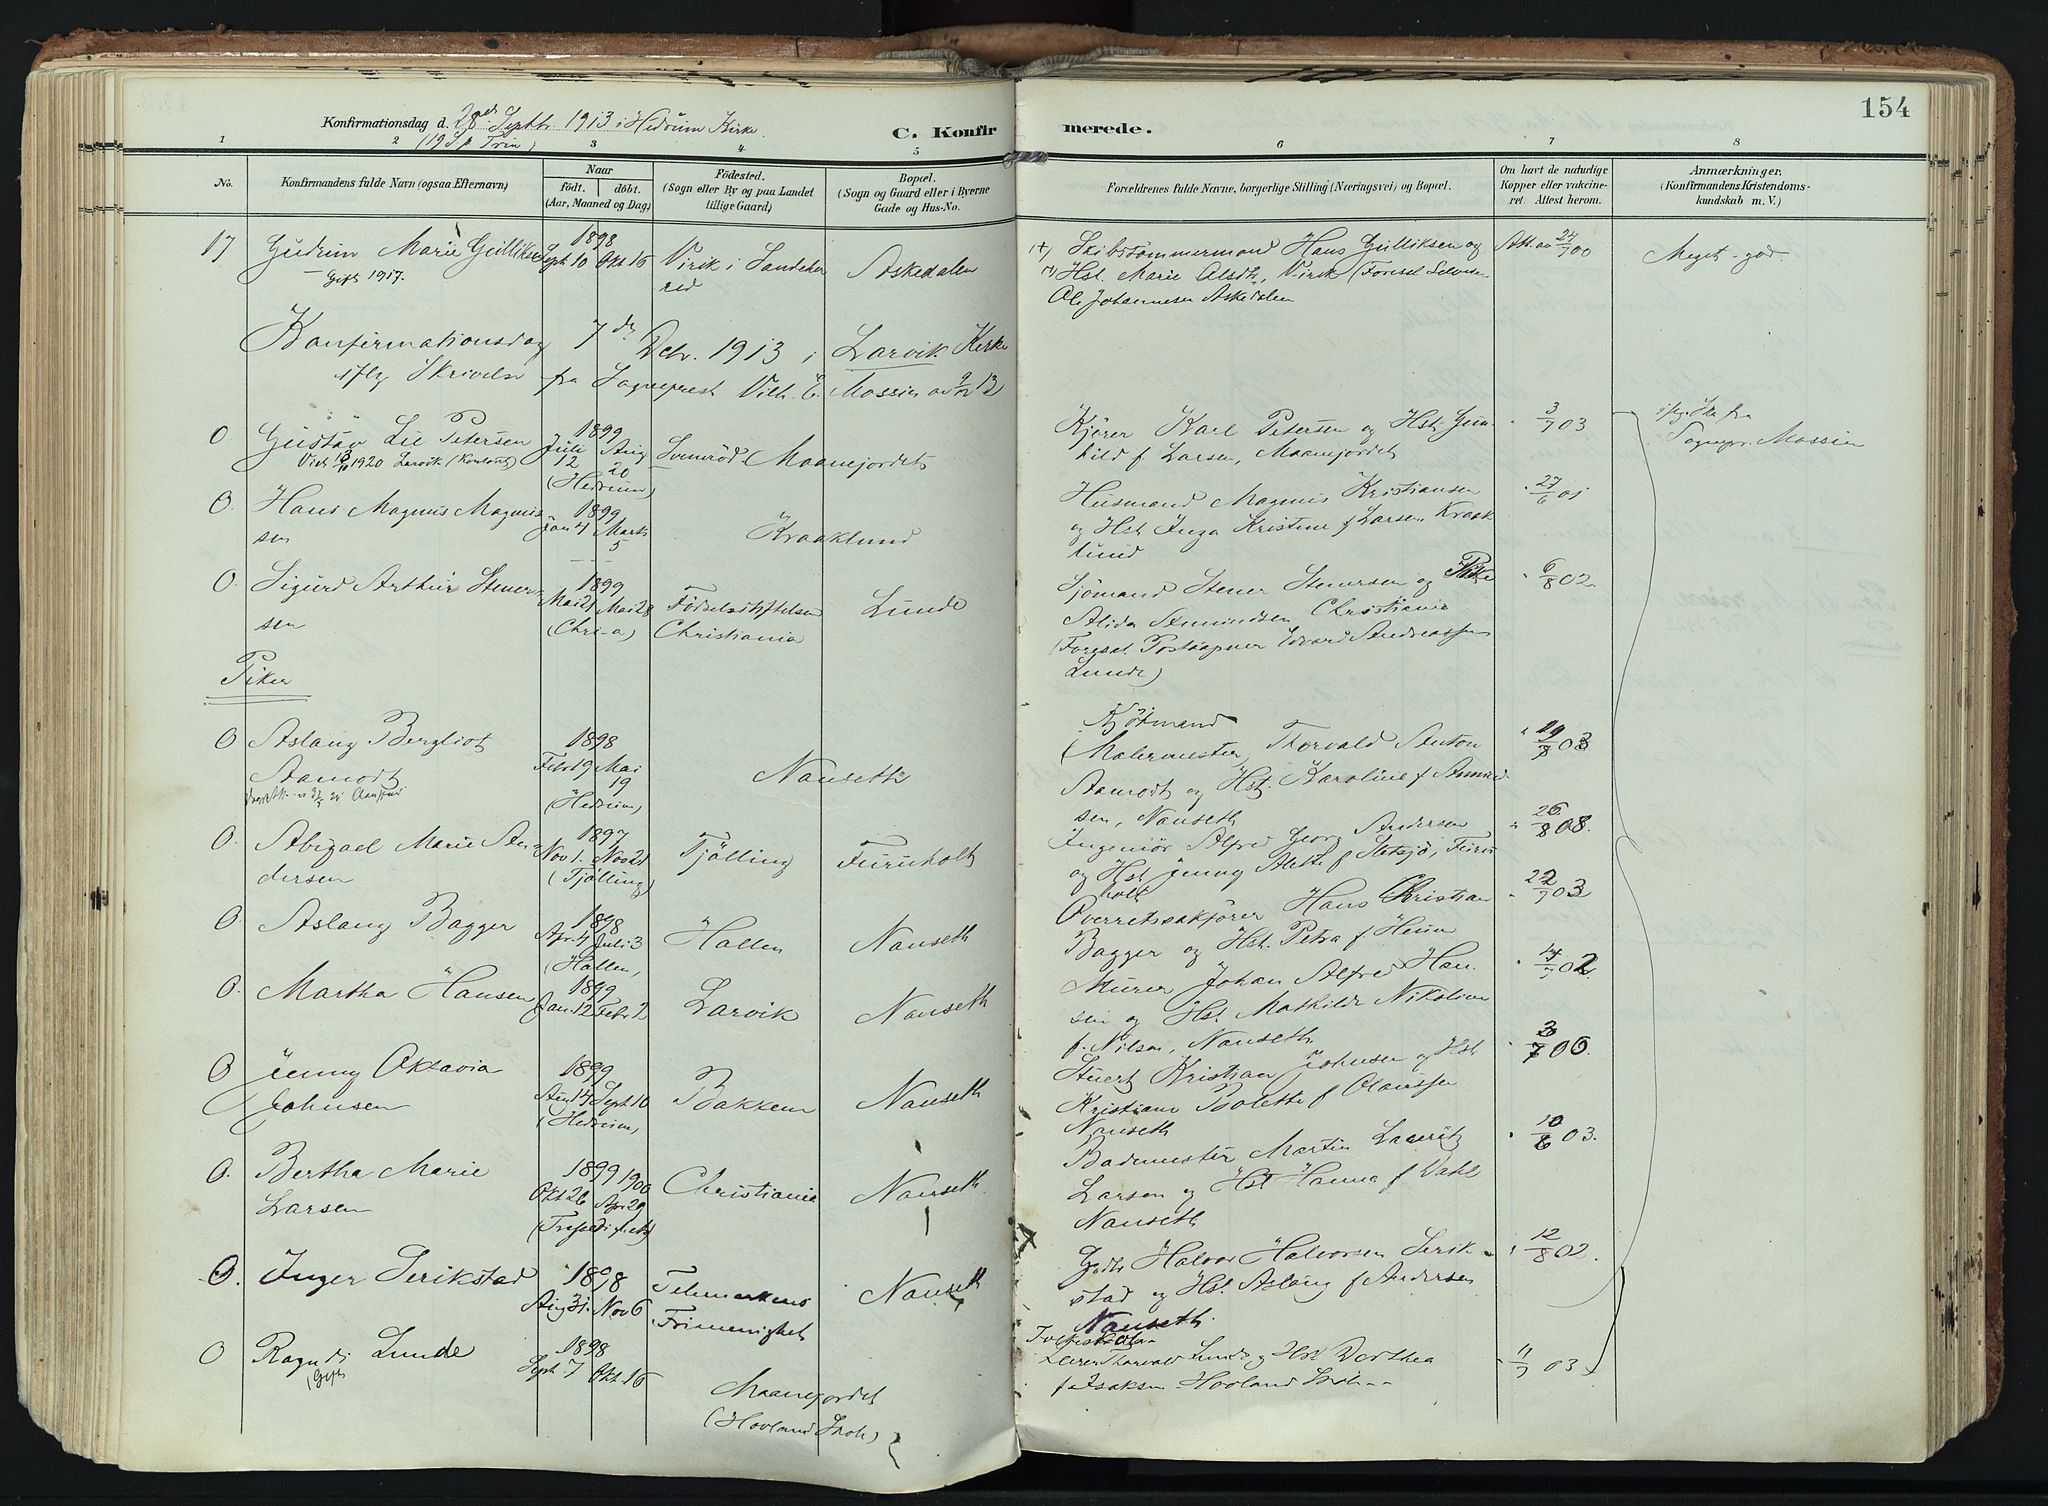 154
Konfirmationsdag d. 28de Septbr 1913 i Hedrum Kirke.
(19 S. p Trin)
C. Konfirmerede.
1 2 3 4 5 6 7 8
No.
Konfirmandens fulde Navn (ogsaa Efternavn)
Naar
født. døbt.
(Aar, Maaned og Dag)
Fødested.
(Sogn eller By og paa Landet
tillige Gaard)
Bopæl.
(Sogn og Gaard eller i Byerne
Gade og Hus-No.
Forældrenes fulde Navne, borgerlige Stilling (Næringsvei) og Bopæl.
Om havt de naturlige
Kopper eller vakcine-
ret. Attest herom.
Anmærkninger,
(Konfirmandens Kristendoms-
kundskab m. V.)
17 Gudrun Marie Gulliksen 1898 Sept 10 Okt 16 Virik i Sandehe Askedalen
red
Gift 1917.
Skibstømmermand Hans Gulliksen og
Hst. Marie Olsdtr, Virik (Foresat Selveier
Ole Johannesen Askedalen
Att. av 24/7 00
Meget god.
Konfirmationsdag 7de Debr. 1913 i Larvik Kirke
iflg Skrivelse fra Sogneprest Vilh. C. Massie av 9/12 13
0 Gustav Lie Petersen 1899 Juli 12 Aug 20 Svemröd Maanejordet
1920 Larvik
(Hedrum)
Kjører Karl Petersen og Hst. Gun
hild f Larsen, Maanejordet
3/7 03
iflg. Skr fra
Sognepr. Massie
0 Hans Magnus Magnus
sen
1899 Jan 4 Marts 5 Kraaklund
Husmand Magnus Kristiansen
og Hst Inga Kristine f Larsen, Kraak
lund
27/6 01
0. Sigurd Arthur Stener
sen
1899 Mai 21 Mai 28 Fødselsstiftelsen Lunde
(Chr-a) Christiania
Sjömand Stener Stenersen og Pike
Alida Amundsen Christiania
(Foresat Postaapner Edvard Andreassen
Lunde)
6/8 02.
Piker
0 Aslaug Bergliot
Aamodt
1898 Febr 19 Mai 19 Nanseth
(Hedrum)
Kjöbmand
(Malermester) Thorvald Anton
Aamodt og Hst. Karoline f Amund
sen, Nanseth
19/8 03
0. Abigael Marie An
dersen
1897 Nov 1. Nov 21 Tjølling Furuholt
(Tjølling)
Ingeniør Alfred Georg Andersen
og Hst Jenny Alette f Stetsjö, Furu
holt
26/8 08.
0. Aslaug Bagger 1898 Apr 4 Juli 3 Hallen Nanseth
(Hallen)
Overretssakfører Hans Christian
Bagger og Hst. Petra f Heim
22/7 03
0. Martha Hansen 1899 Jan. 12 Febr 2 Larvik Nanseth
Murer Johan Alfred Han
sen og Hst Mathilde Nikoline
f. Nilsen, Nanseth
02.
0 Jenny Oktavia
Johnsen
1899 Aug 14 Sept 10 Bakken Nanseth
(Hedrum)
Stuert Kristian Johnsen og Hst
Kristiane Bolette f Olaussen
Nanseth
06.
0. Bertha Marie
Larsen
1899 1900
Okt 26 Apr 29 Christiania Nanseth.
Bademester Martin Lauritz
Larsen og Hst Hanna f Dahl
Nanseth
10/6 03.
0. Inger Serikstad 1898 Aug 31. Nov 6 Telemarkens Nanseth
Frimenighet
Godts. Halvor Halvorsen Serik
stad og Hst. Aslaug f Andersen
Nanseth
12/8 02.
0 Ragndi Lunde 1898 Sept 7 Okt 16 Maanejordet
(Gift (Hovland Skole)
Lærer Thorvald Lunde og Hst Dorthea
f. Isaksen Hovland Skole
11/7 03